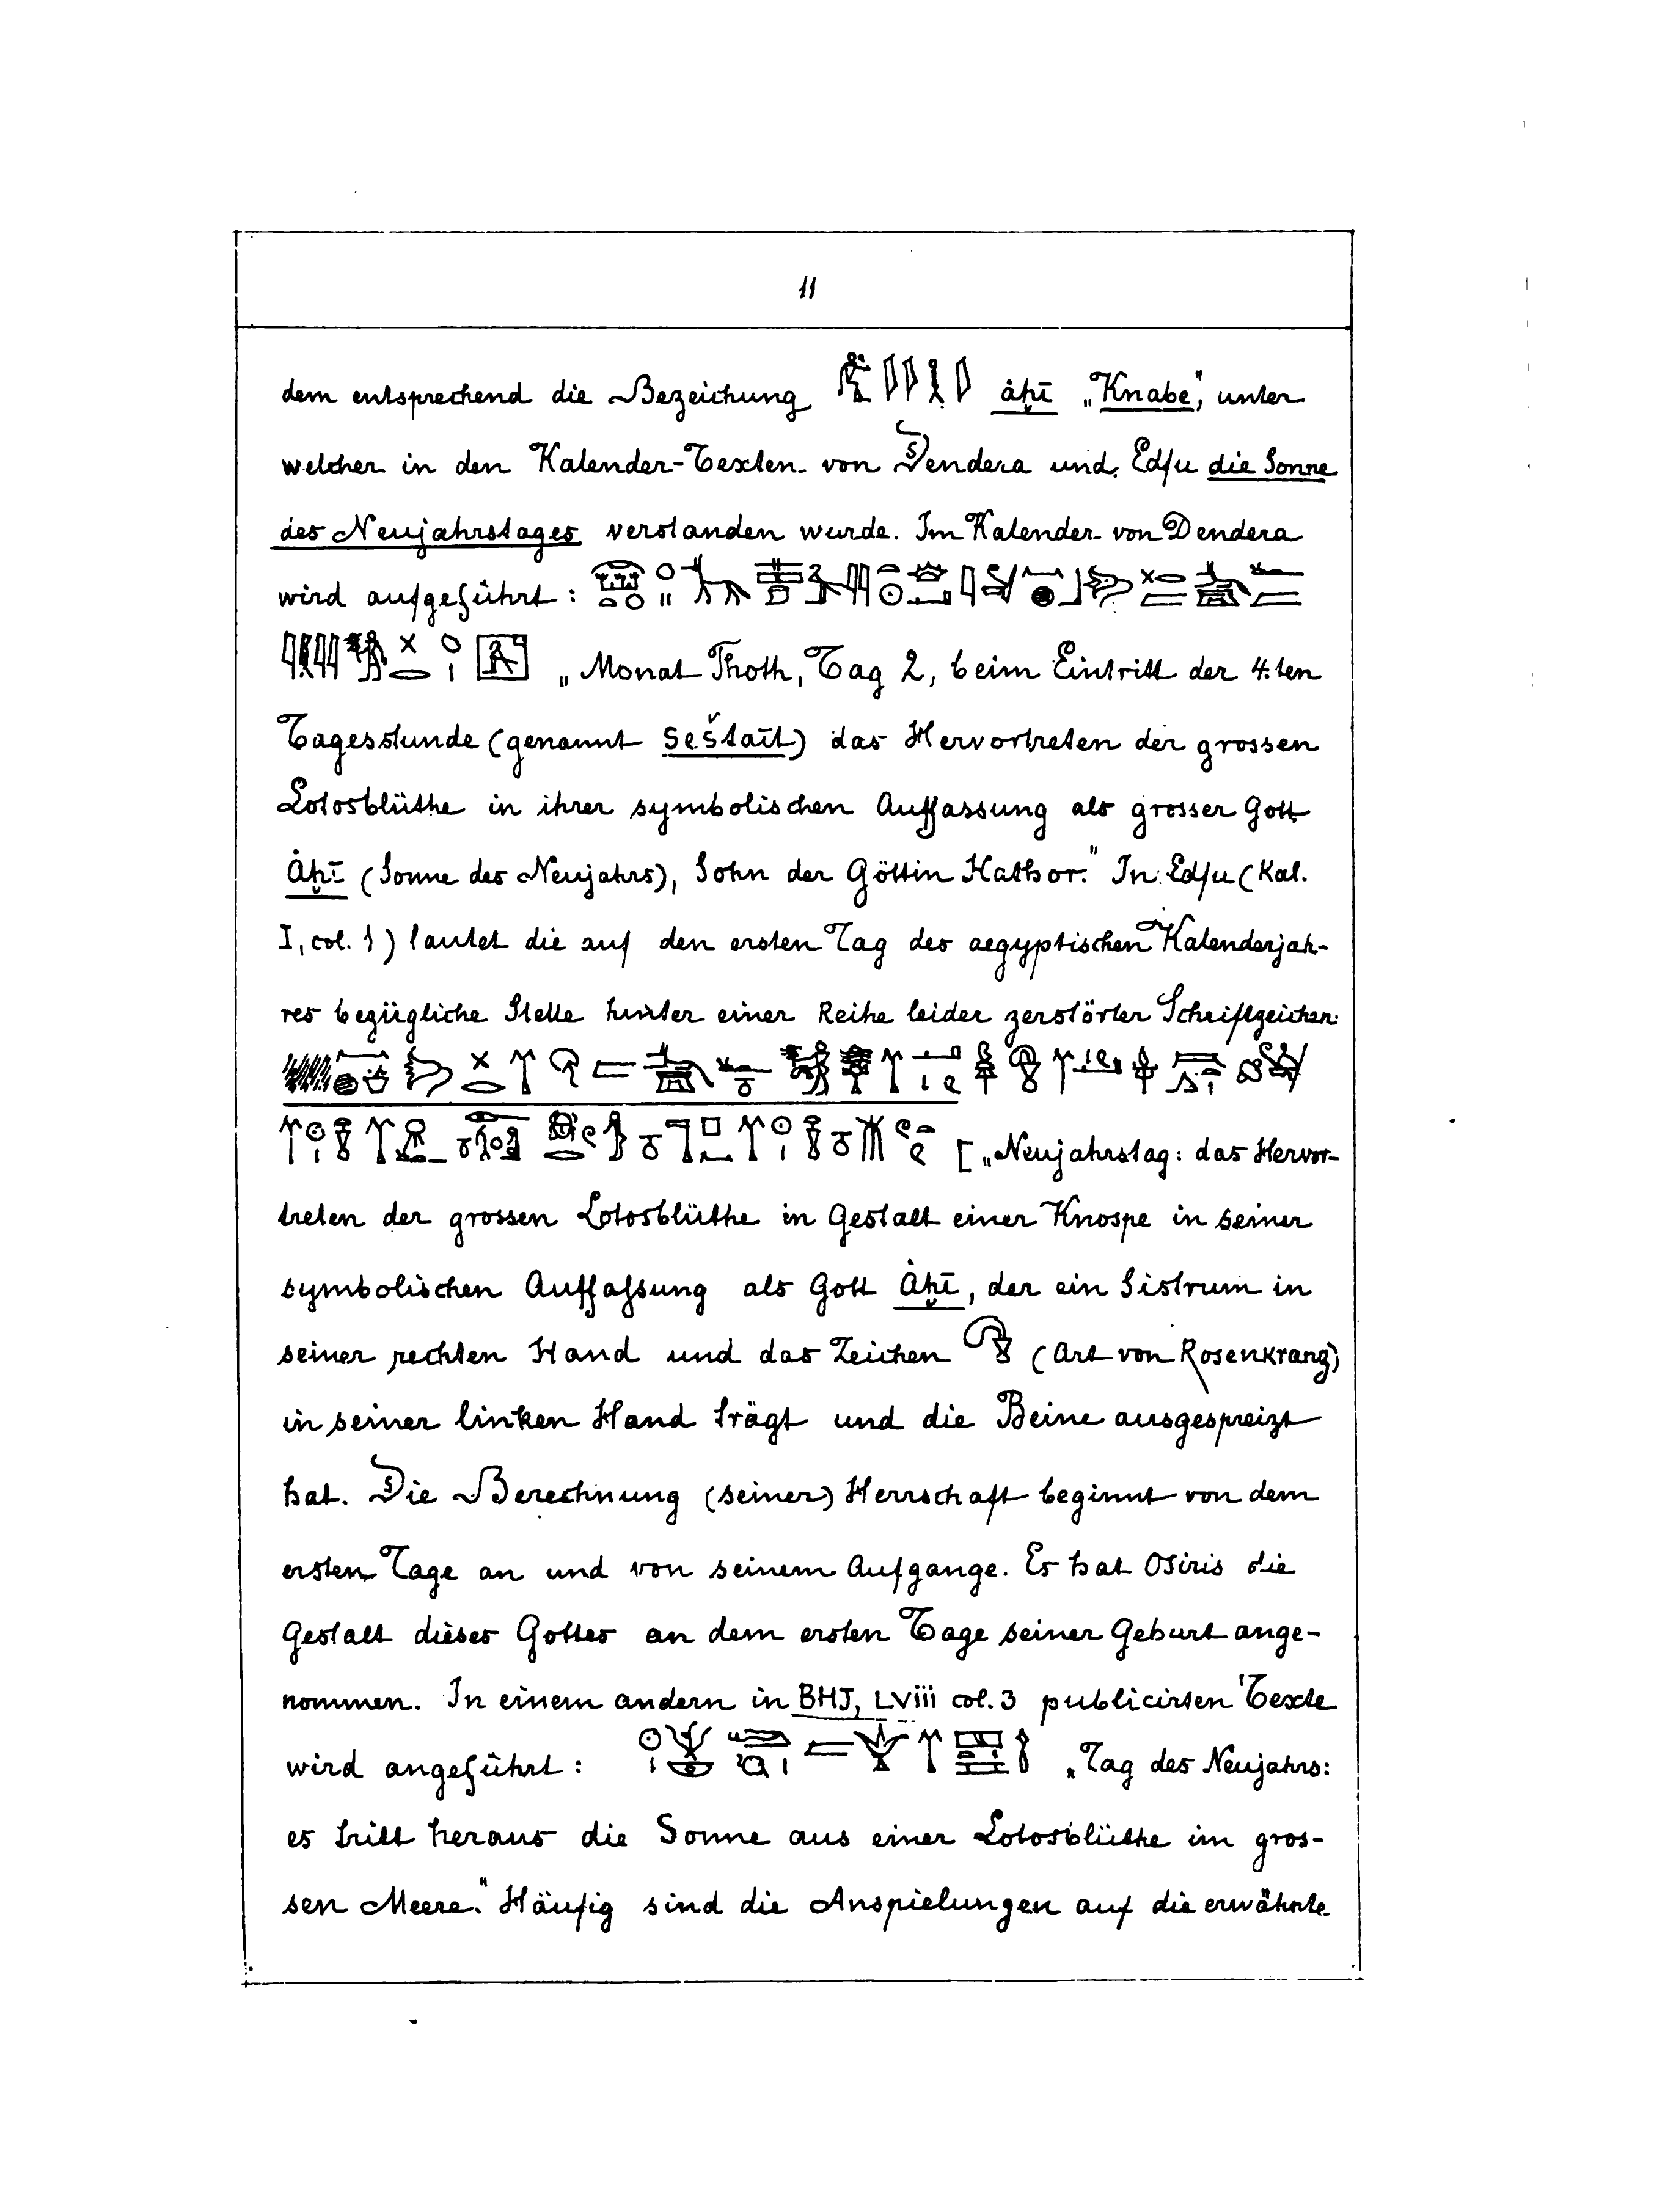 11
dem entsprechend die Bezeichung ȧḥī „Knabe", unter
welcher in den Kalender-Texten von Dendera und Edfu die Sonne
des Neujahrstages verstanden wurde. Im Kalender von Dendera
wird aufgeführt:
„Monat Thoth, Tag 2, beim Eintritt der 4.ten
Tagesstunde (genannt seštaīt) das Hervortreten der grossen
Lotosblüthe in ihrer symbolischen Auffassung als grosser Gott
Ȧḥī (Sonne des Neujahrs), Sohn der Göttin Hathor." In Edfu (Kal.
I, col. 1) lautet die auf den ersten Tag des aegyptischen Kalenderjah-
res bezügliche Stelle hinter einer Reihe leider zerstörter Schriftzeichen:
[„Neujahrstag: das Hervor-
treten der grossen Lotosblüthe in Gestalt einer Knospe in seiner
symbolischen Auffassung als Gott Ȧḥī, der ein Sistrum in
seiner rechten Hand und das Zeichen (Art von Rosenkranz)
in seiner linken Hand trägt und die Beine ausgespreizt
hat. Die Berechnung (seiner) Herrschaft beginnt von dem
ersten Tage an und von seinem Aufgange. Es hat Osiris die
Gestalt dieses Gottes an dem ersten Tage seiner Geburt ange-
nommen. In einem andern in BHJ, LViii col. 3 publicirten Texte
wird angeführt: „Tag des Neujahrs:
es tritt heraus die Sonne aus einer Lotosblüthe im gros-
sen Meere." Häufig sind die Anspielungen auf die erwähnte